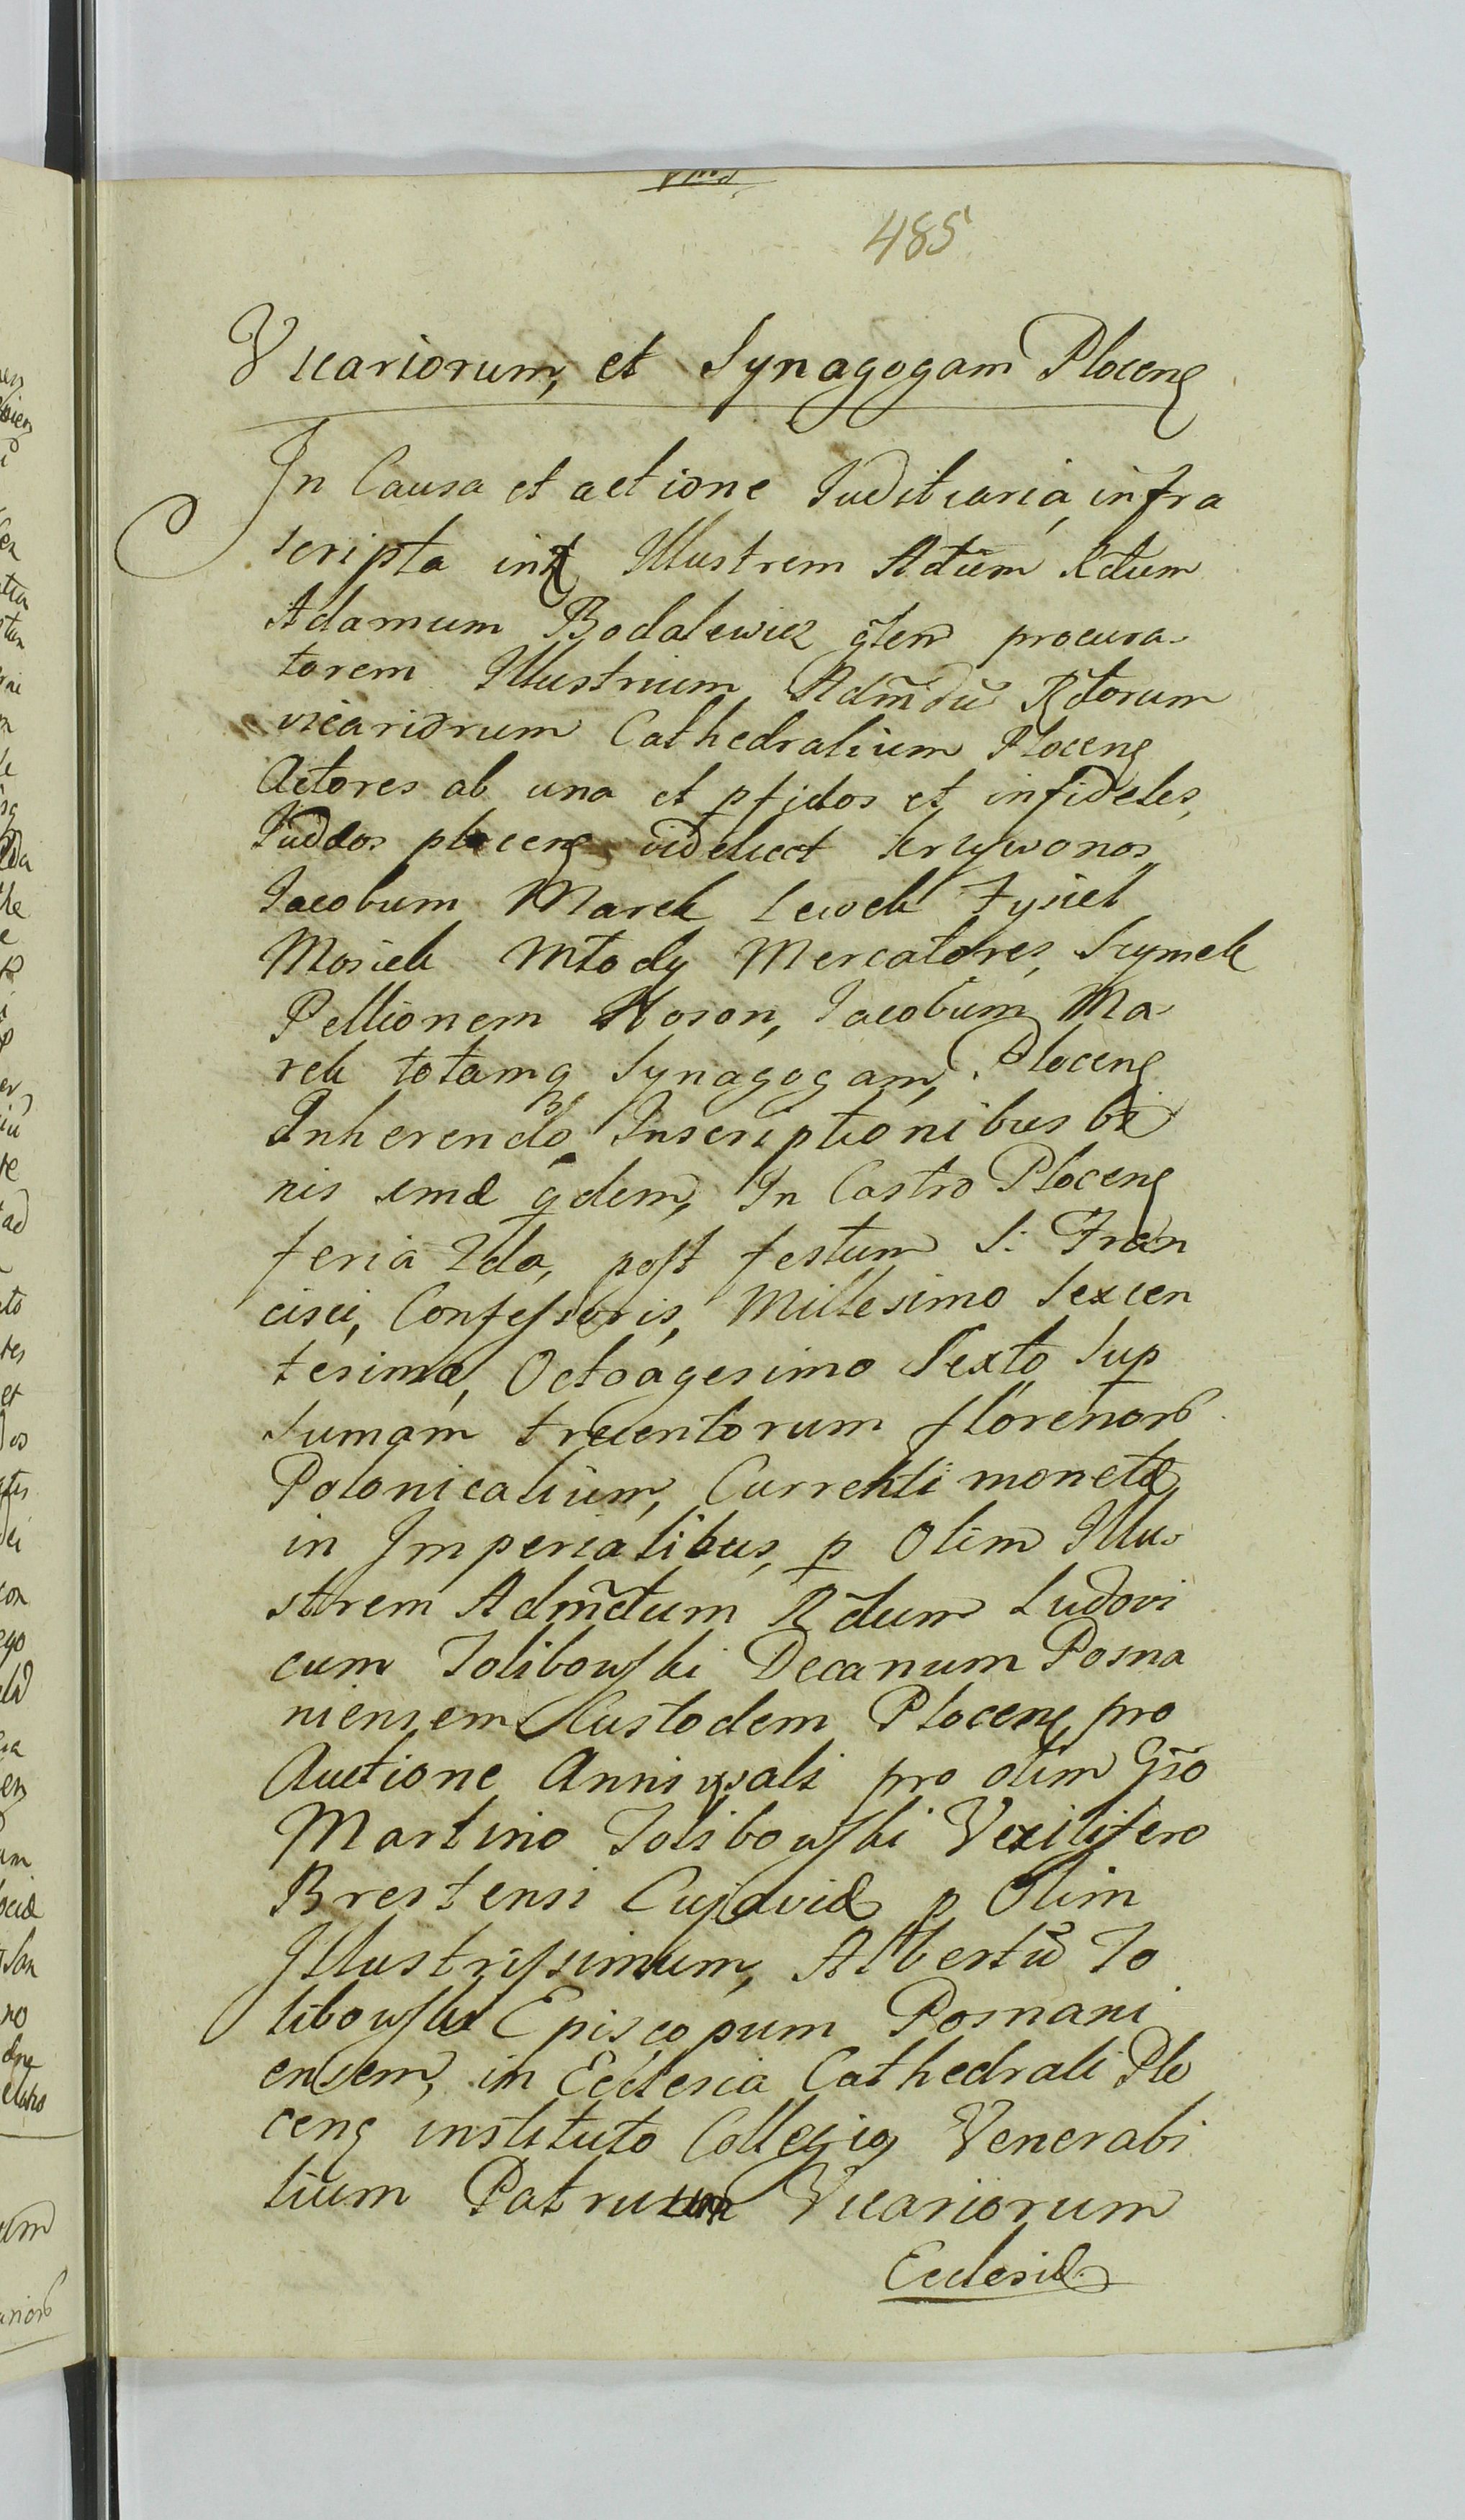 485
Vicariorum, et Synagogam Plocen
In Causa et actione Juditiaria, infra
scripta int Illustrem Adm Rdum
Adamum Bodalewicz glem procura-
torem Illustrium Admdu Rdorum
vicariorum Cathedralium Plocen
Actores ab una et pfidos et infideles,
Judæos plocen videlicet Krzywonos,
Jacobum Marek Lewek Fysiel
Mosiek Młody Mercatores, Szymek
Pellionem Noson, Jacobum Ma-
rek totamq Synagogam, Plocen
Inherendo Inscriptionibus bi
nis imæ qdem, In Castro Plocen
feria 2da, post festum S: Fran
cisci, Confessoris, Millesimo Sexcen
tesimo, Octoagesimo Sexto Sup
Sumam trecentorum florenor
Polonicalium, Currenti monetæ,
in Imperialibus, p Olim Illu-
strem Admdum Rdum Ludovi
cum Tolibowski Decanum Posna
niensem Custodem Plocen pro
Auctione Anniversali pro olim Gso
Martino Tolibowski Vexilifero
Brestensi Cujaviæ p Olim
Illustrissimum, Albertū To
libowski Episcopum Posnani
ensem, in Ecclesia Cathedrali Plo
cen instituto Collegio, Venerabi
lium Patrum Vicariorum
Ecclesiæ